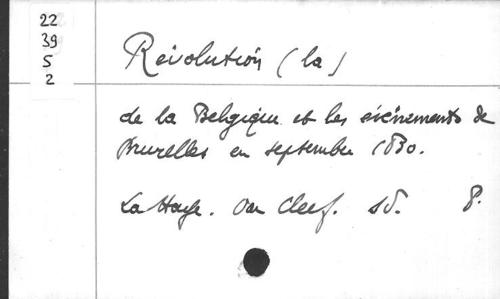 22
39
5
2
Révolution (la)
de la Belgique et les événements de
Bruxelles en septembre 1830.
La Haye. Van Cleef. s d. 8.